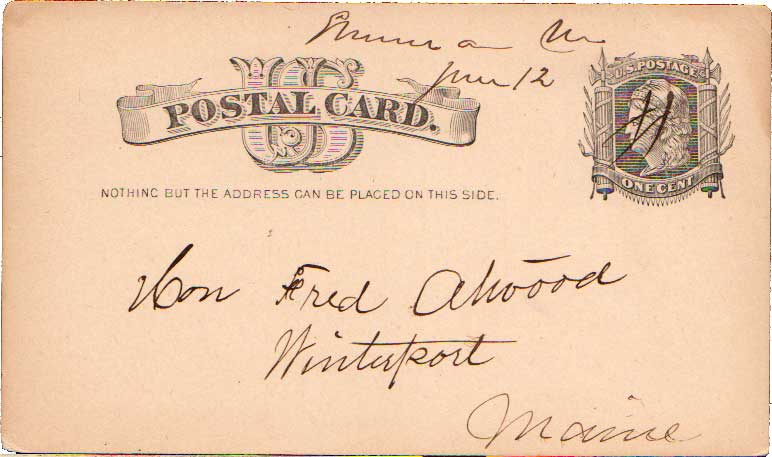 Me
June 12
U.S. POSTAGE
POSTAL CARD.
US
NOTHING BUT THE ADDRESS CAN BE PLACED ON THIS SIDE.
ONE CENT
Hon Fred Atwood
Winterport
Maine